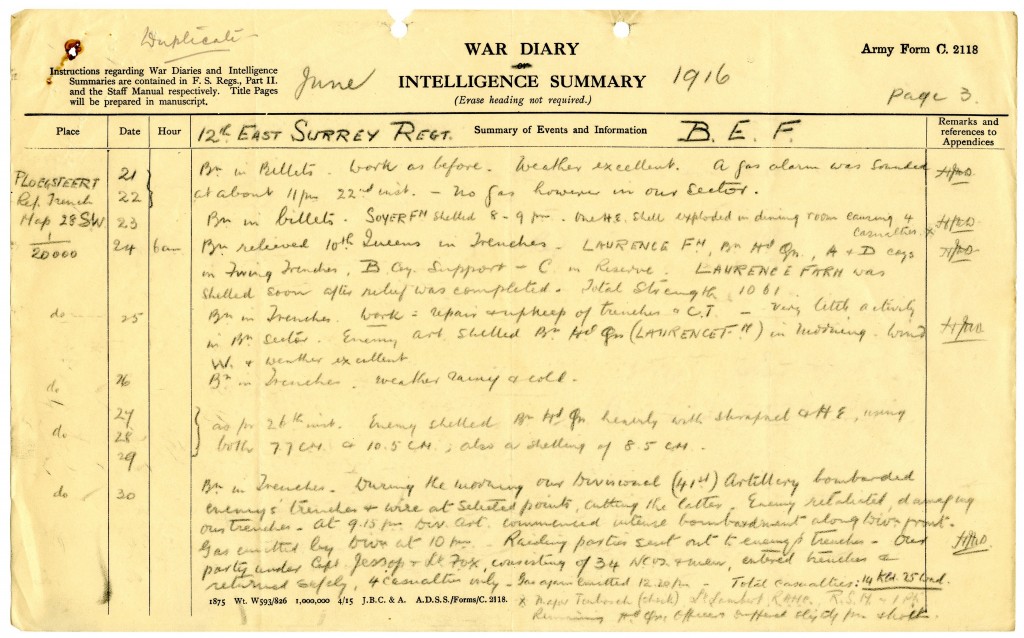 Duplicate
WAR DIARY
or
INTELLIGENCE SUMMARY
(Erase heading not required.)
Army Form C. 2118
Instructions regarding War Diaries and Intelligence
Summaries are contained in F. S. Regs., Part II.
and the Staff Manual respectively. Title Pages
will be prepared in manuscript.
June 1916
Page 3.
Place Date Hour 12th EAST SURREY REGT. Summary of Events and Information B. E. F. Remarks and references to Appendices
PLOEGSTEERT 21 Bn in Billets. Work as before. Weather excellent. A gas alarm was sounded
Ref. Trench 22 at about 11 pm 22nd inst. - No gas however in our Sector.
Map 28 SW 23 Bn in billets. SOYER FM shelled 8-9 pm. One H.E. shell exploded in dining room causing 4 casualties. x
1/20000 24 6am Bn relieved 10th Queens in Trenches. LAURENCE FM, Bn Hd Qrs, A & D coys
in Firing Trenches, B Coy. Support - C. in Reserve. LAURENCE FARM was
shelled soon after relief was completed. Total Strength 1061
do 25 Bn in Trenches. Work = repair & upkeep of trenches & C.T. - very little activity
in Bn sector. Enemy art shelled Bn Hd Qrs (LAURENCE FM) in Morning. Wind
W. & weather excellent
do 26 Bn in Trenches. Weather rainy & cold.
27
do 28 as for 26th inst. Enemy shelled Bn Hd Qrs heavily with shrapnel & H.E, using
29 both 77 CM & 10.5 CM., also a shelling of 8.5 CM.
do 30 Bn in Trenches. During the morning our Divisional (41st) Artillery bombarded
enemy's trenches & wire at selected points, cutting the latter. Enemy retaliated, damaging
our trenches. At 9.15 pm Div. Art. commenced intense bombardment along Divn front.
Gas emitted by Divn at 10 pm. Raiding parties sent out to enemy's trenches - Our
party under Capt. Jessop & Lt. Fox, consisting of 34 NCOs & men, entered trenches &
returned safely, 4 casualties only. Gas again emitted 12.20 pm - Total casualties: 14 Kld. 25 Wnd.
1875 Wt. W593/826 1,000,000 4/15 J.B.C. & A. A.D.S.S./Forms/C. 2118.
x Major (cheek) Lt. Lambert R.A.M.C. R.S.M.
Remaining Hd Qrs Officers suffered slightly from shock.